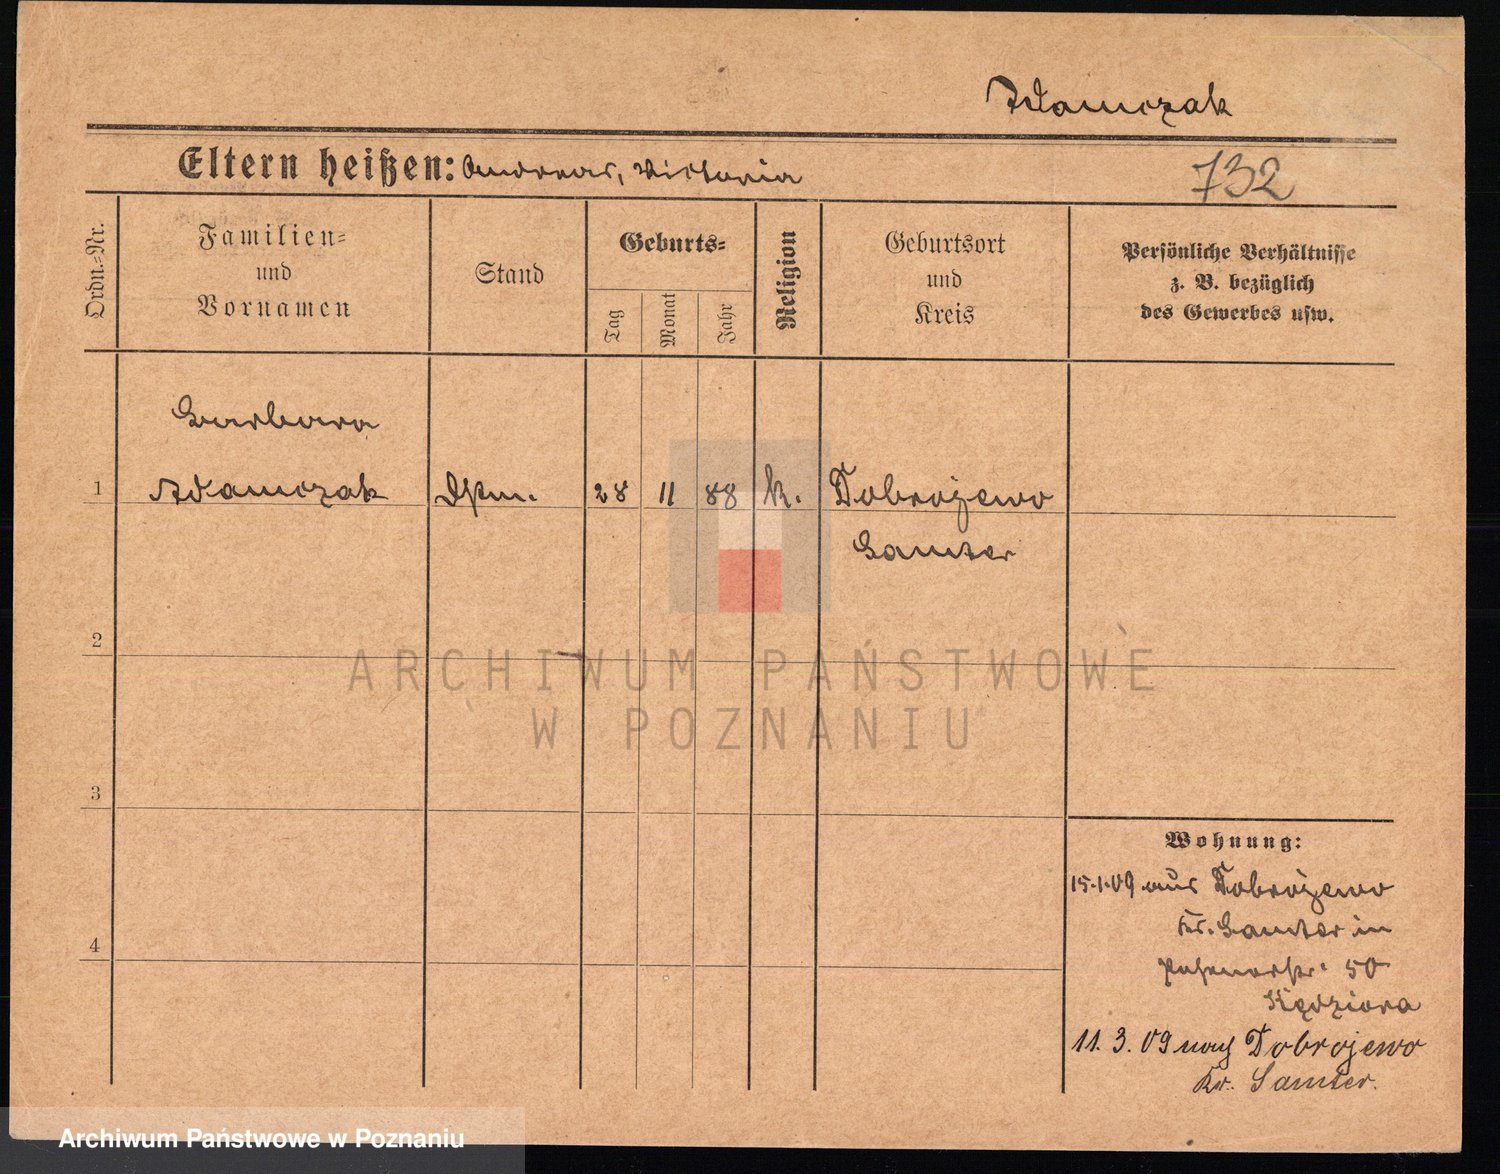 Adamczak
Eltern heißen: Andreas, Victoria
732
Ordn.=Nr.
Familien=
und
Vornamen
Stand
Geburts=
Tag
Monat
Jahr
Religion
Geburtsort
und
Kreis
Persönliche Verhältnisse
z. B. bezüglich
des Gewerbes usw.
Barbara
1 Adamczak 28 11 88 k. Dobrojewo
Samter
2
ARCHIWUM PAŃSTWOWE
W POZNANIU
3
Wohnung:
15.1.09 aus Dobrojewo
Kr. Samter in
4
50
Kędziora
11. 3. 09 nach Dobrojewo
Kr. Samter.
Archiwum Państwowe w Poznaniu